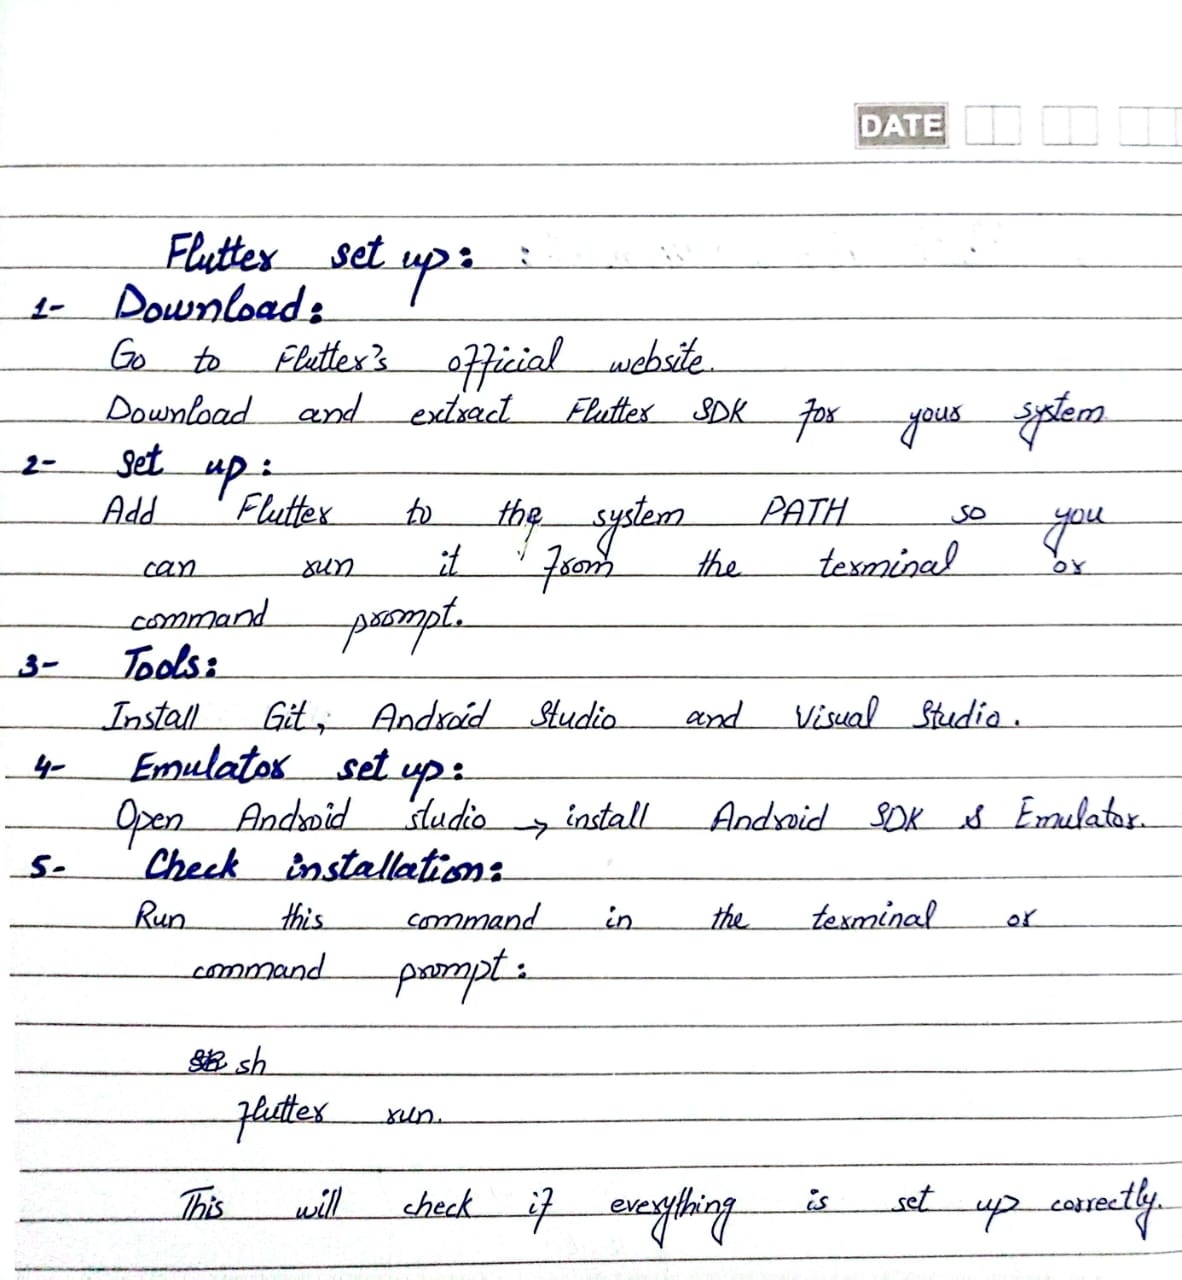 DATE
Flutter set up: :
1- Download:
Go to Flutter's official website.
Download and extract Flutter SDK for your system
2- Set up:
Add Flutter to the system PATH so you
can run it from the terminal or
command prompt.
3- Tools:
Install Git, Android Studio and Visual Studio.
4- Emulator set up:
Open Android studio → install Android SDK & Emulator.
5- Check installation:
Run this command in the terminal or
command prompt:
sh
flutter run.
This will check if everything is set up correctly.